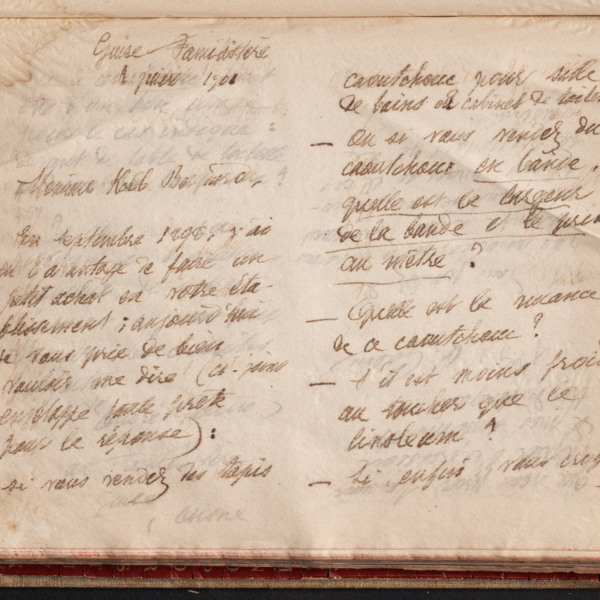 Guise Familistère
2 juin 190
Monsieur
En septembre 1896, j'ai
eu l'avantage de faire un
petit achat en votre éta-
blissement ; aujourd'hui
je vous prie de bien
vouloir me dire (ci-joint
enveloppe toute prête
pour la réponse) :
si vous vendez des tapis
caoutchouc pour salle
de bains et cabinet de toilet
— Ou si vous vendez du
caoutchouc en bande,
quelle est la largeur
de la bande et le prix
au mètre ?
— Quelle est la nuance
de ce caoutchouc ?
— S'il est moins froid
au toucher que le
linoleum ?
— Si enfin vous croy